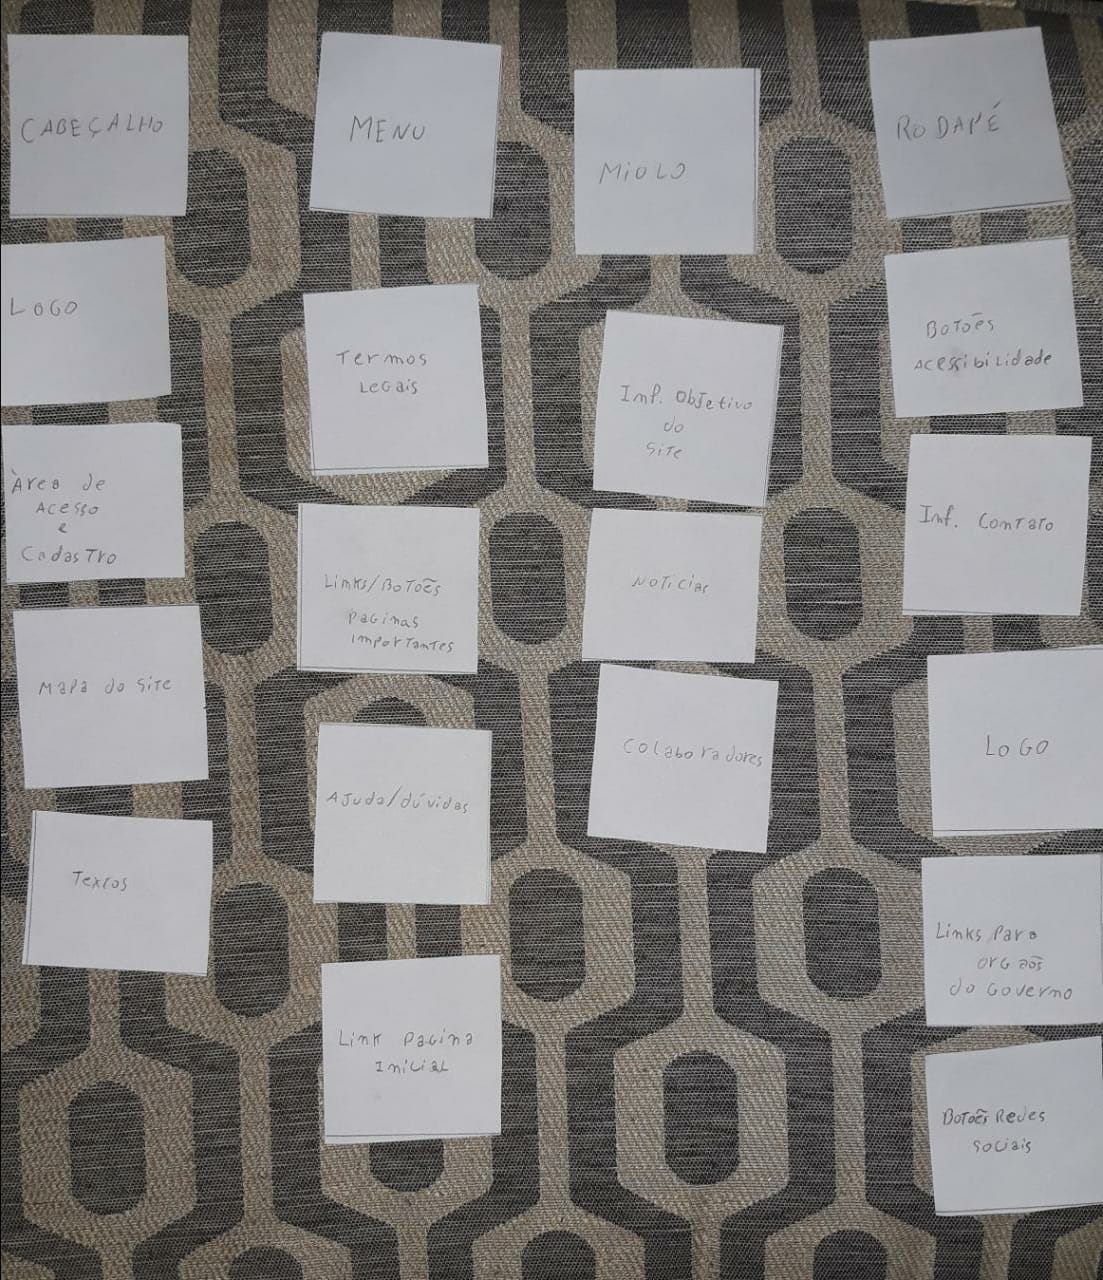 CABEÇALHO
LOGO
Área de
Acesso
e
CadasTro
Mapa do Site
Textos
MENU
Termos
Legais
Links/BoTões
Paginas
importantes
Ajuda/dúvidas
Link Pagina
Inicial
MIOLO
Inf. Objetivo
do
Site
NOTICIAS
Colaboradores
RODAPÉ
BoTões
Acessibilidade
Inf. Contato
LOGO
Links Para
orgãos
do Governo
BoTões Redes
Sociais